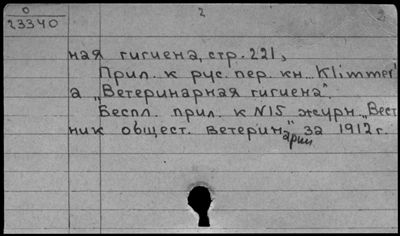 0
23340
2
2
ная гигиена, стр. 221,
Прил. к рус. пер. кн. Klimmer'
а „Ветеринарная гигиена".
Беспл. прил. к N15 журн. „Вест
ник общест. ветеринарии" за 1912 г.